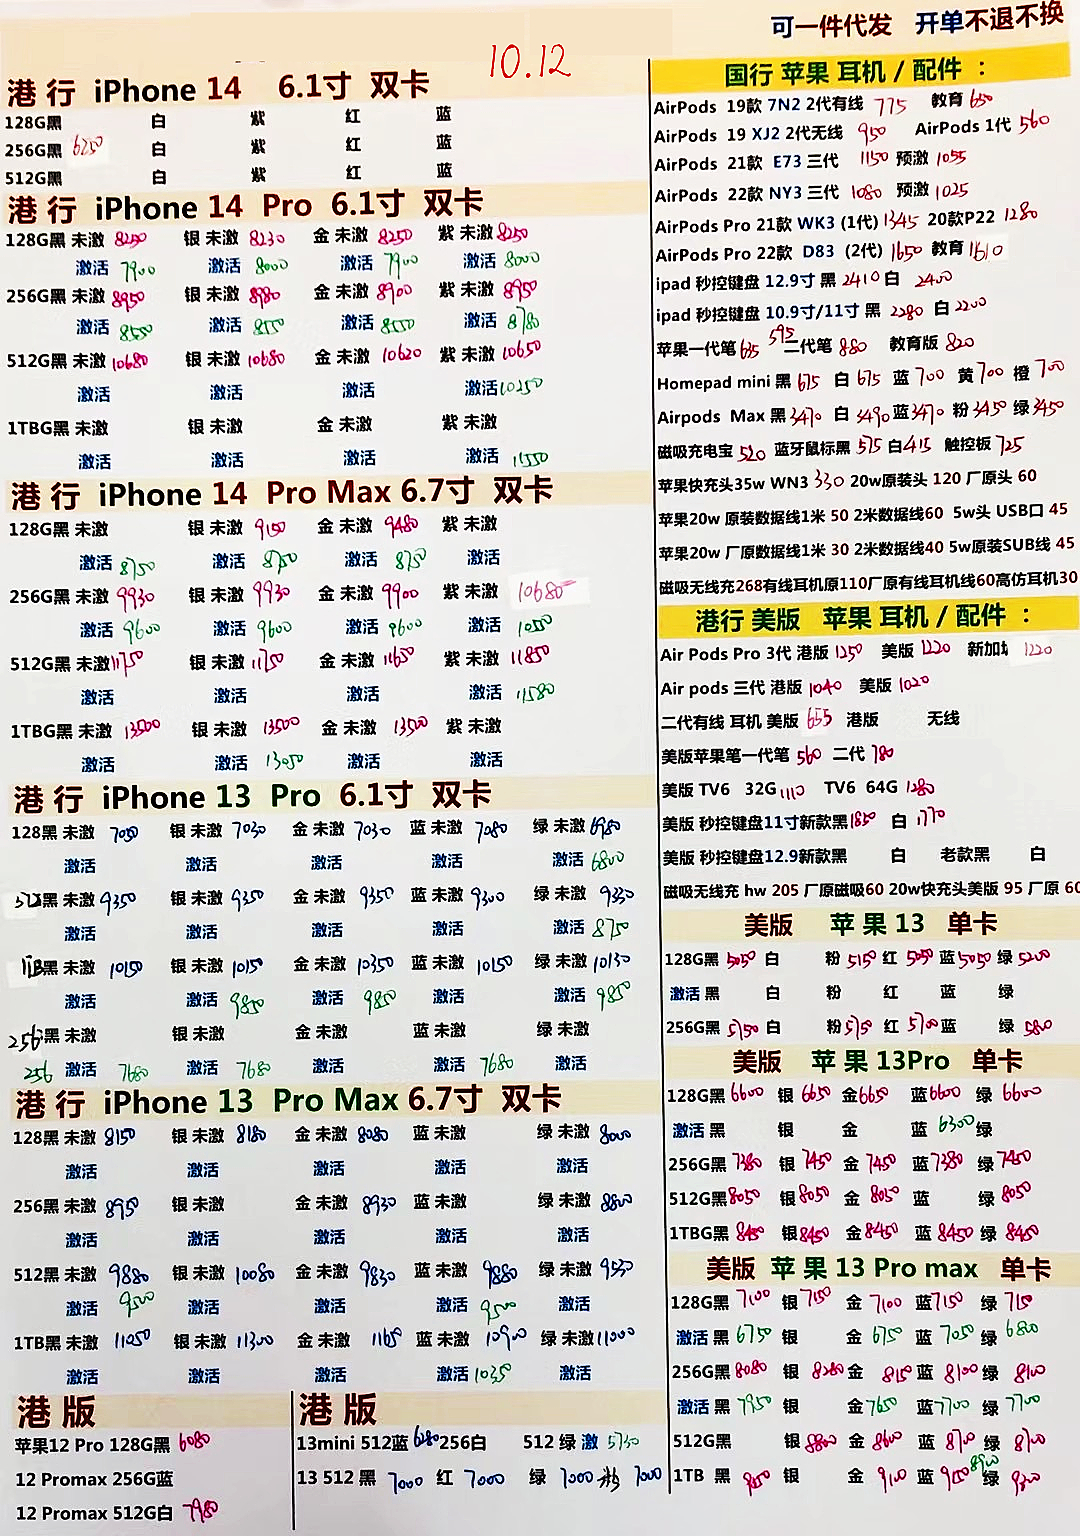 可一件代发 开单不退不换
10.12
港 行 iPhone 14 6.1寸 双卡
128G黑 白 紫 红 蓝
256G黑 6250 白 紫 红 蓝
512G黑 白 紫 红 蓝
港 行 iPhone 14 Pro 6.1寸 双卡
128G黑 未激 8250 银 未激 8230 金 未激 8250 紫 未激 8250
激活 7900 激活 8000 激活 7900 激活 8000
256G黑 未激 8950 银 未激 8980 金 未激 8900 紫 未激 8950
激活 8550 激活 8550 激活 8550 激活 8780
512G黑 未激 10680 银 未激 10680 金 未激 10620 紫 未激 10650
激活 激活 激活 激活 10250
1TBG黑 未激 银 未激 金 未激 紫 未激
激活 激活 激活 激活 11550
港 行 iPhone 14 Pro Max 6.7寸 双卡
128G黑 未激 银 未激 9150 金 未激 9480 紫 未激
激活 8750 激活 8750 激活 8750 激活
256G黑 未激 9930 银 未激 9930 金 未激 9900 紫 未激 10680
激活 9600 激活 9600 激活 9600 激活 1050
512G黑 未激 11750 银 未激 11750 金 未激 11650 紫 未激 11850
激活 激活 激活 激活 11580
1TBG黑 未激 13500 银 未激 13500 金 未激 13500 紫 未激
激活 激活 13050 激活 激活
港 行 iPhone 13 Pro 6.1寸 双卡
128黑 未激 7050 银 未激 7030 金 未激 7030 蓝 未激 7080 绿 未激 6980
激活 激活 激活 激活 激活 6800
512黑 未激 9350 银 未激 9350 金 未激 9350 蓝 未激 9300 绿 未激 9330
激活 激活 激活 激活 激活 8750
1TB黑 未激 10150 银 未激 10150 金 未激 10350 蓝 未激 10150 绿 未激 10130
激活 激活 9850 激活 9850 激活 激活 9850
256黑 未激 银 未激 金 未激 蓝 未激 绿 未激
256 激活 7680 激活 7680 激活 激活 7680 激活
港 行 iPhone 13 Pro Max 6.7寸 双卡
128黑 未激 8150 银 未激 8180 金 未激 8080 蓝 未激 绿 未激 8000
激活 激活 激活 激活 激活
256黑 未激 8950 银 未激 金 未激 8930 蓝 未激 绿 未激 8800
激活 激活 激活 激活 激活
512黑 未激 9880 银 未激 10080 金 未激 9830 蓝 未激 9880 绿 未激 9530
激活 9500 激活 激活 激活 9500 激活
1TB黑 未激 11050 银 未激 11300 金 未激 11650 蓝 未激 10900 绿 未激 11000
激活 激活 激活 激活 1035 激活
港 版
苹果12 Pro 128G黑 6080
12 Promax 256G蓝
12 Promax 512G白 7980
港 版
13mini 512蓝 6280 256白 512 绿 激 5730
13 512 黑 7000 红 7000 绿 7000 粉 7000
国行 苹果 耳机 / 配件 ：
AirPods 19款 7N2 2代有线 775 教育 650
AirPods 19 XJ2 2代无线 950 AirPods 1代 560
AirPods 21款 E73 三代 1150 预激 1055
AirPods 22款 NY3 三代 1080 预激 1025
AirPods Pro 21款 WK3 (1代) 1345 20款P22 1280
AirPods Pro 22款 D83 (2代) 1650 教育 1610
ipad 秒控键盘 12.9寸 黑 2410 白 2400
ipad 秒控键盘 10.9寸/11寸 黑 2280 白 2200
苹果一代笔 635 595 二代笔 880 教育版 820
Homepad mini 黑 675 白 675 蓝 700 黄 700 橙 700
Airpods Max 黑 3470 白 3490 蓝 3470 粉 3450 绿 3450
磁吸充电宝 520 蓝牙鼠标黑 575 白 415 触控板 725
苹果快充头35w WN3 330 20w原装头 120 厂原头 60
苹果20w 原装数据线1米 50 2米数据线60 5w头 USB口 45
苹果20w 厂原数据线1米 30 2米数据线40 5w原装SUB线 45
磁吸无线充268有线耳机原110厂原有线耳机线60高仿耳机30
港行 美版 苹果 耳机 / 配件 ：
Air Pods Pro 3代 港版 1250 美版 1220 新加 1220
Air pods 三代 港版 1040 美版 1020
二代有线 耳机 美版 655 港版 无线
美版苹果笔一代笔 560 二代 780
美版 TV6 32G 1110 TV6 64G 1280
美版 秒控键盘11寸新款黑 1850 白 1770
美版 秒控键盘12.9新款黑 白 老款黑 白
磁吸无线充 hw 205 厂原磁吸60 20w快充头美版 95 厂原 60
美版 苹 果 13 单卡
128G黑 5050 白 粉 5150 红 5050 蓝 5050 绿 5200
激活 黑 白 粉 红 蓝 绿
256G黑 5750 白 粉 575 红 5700 蓝 绿 580
美版 苹 果 13Pro 单卡
128G黑 6600 银 6650 金 6650 蓝 6600 绿 6600
激活 黑 银 金 蓝 6300 绿
256G黑 7380 银 7450 金 7450 蓝 7380 绿 7450
512G黑 8050 银 8050 金 8050 蓝 绿 8050
1TBG黑 8450 银 8450 金 8450 蓝 8450 绿 8450
美版 苹 果 13 Pro max 单卡
128G黑 7100 银 7150 金 7100 蓝 7150 绿 715
激活 黑 6750 银 金 6750 蓝 7050 绿 6800
256G黑 8080 银 8280 金 815 蓝 8100 绿 8100
激活 黑 7950 银 金 7650 蓝 7700 绿 7700
512G黑 银 8800 金 8600 蓝 8700 绿 8700
1TB 黑 银 金 9100 蓝 8900 绿 9300